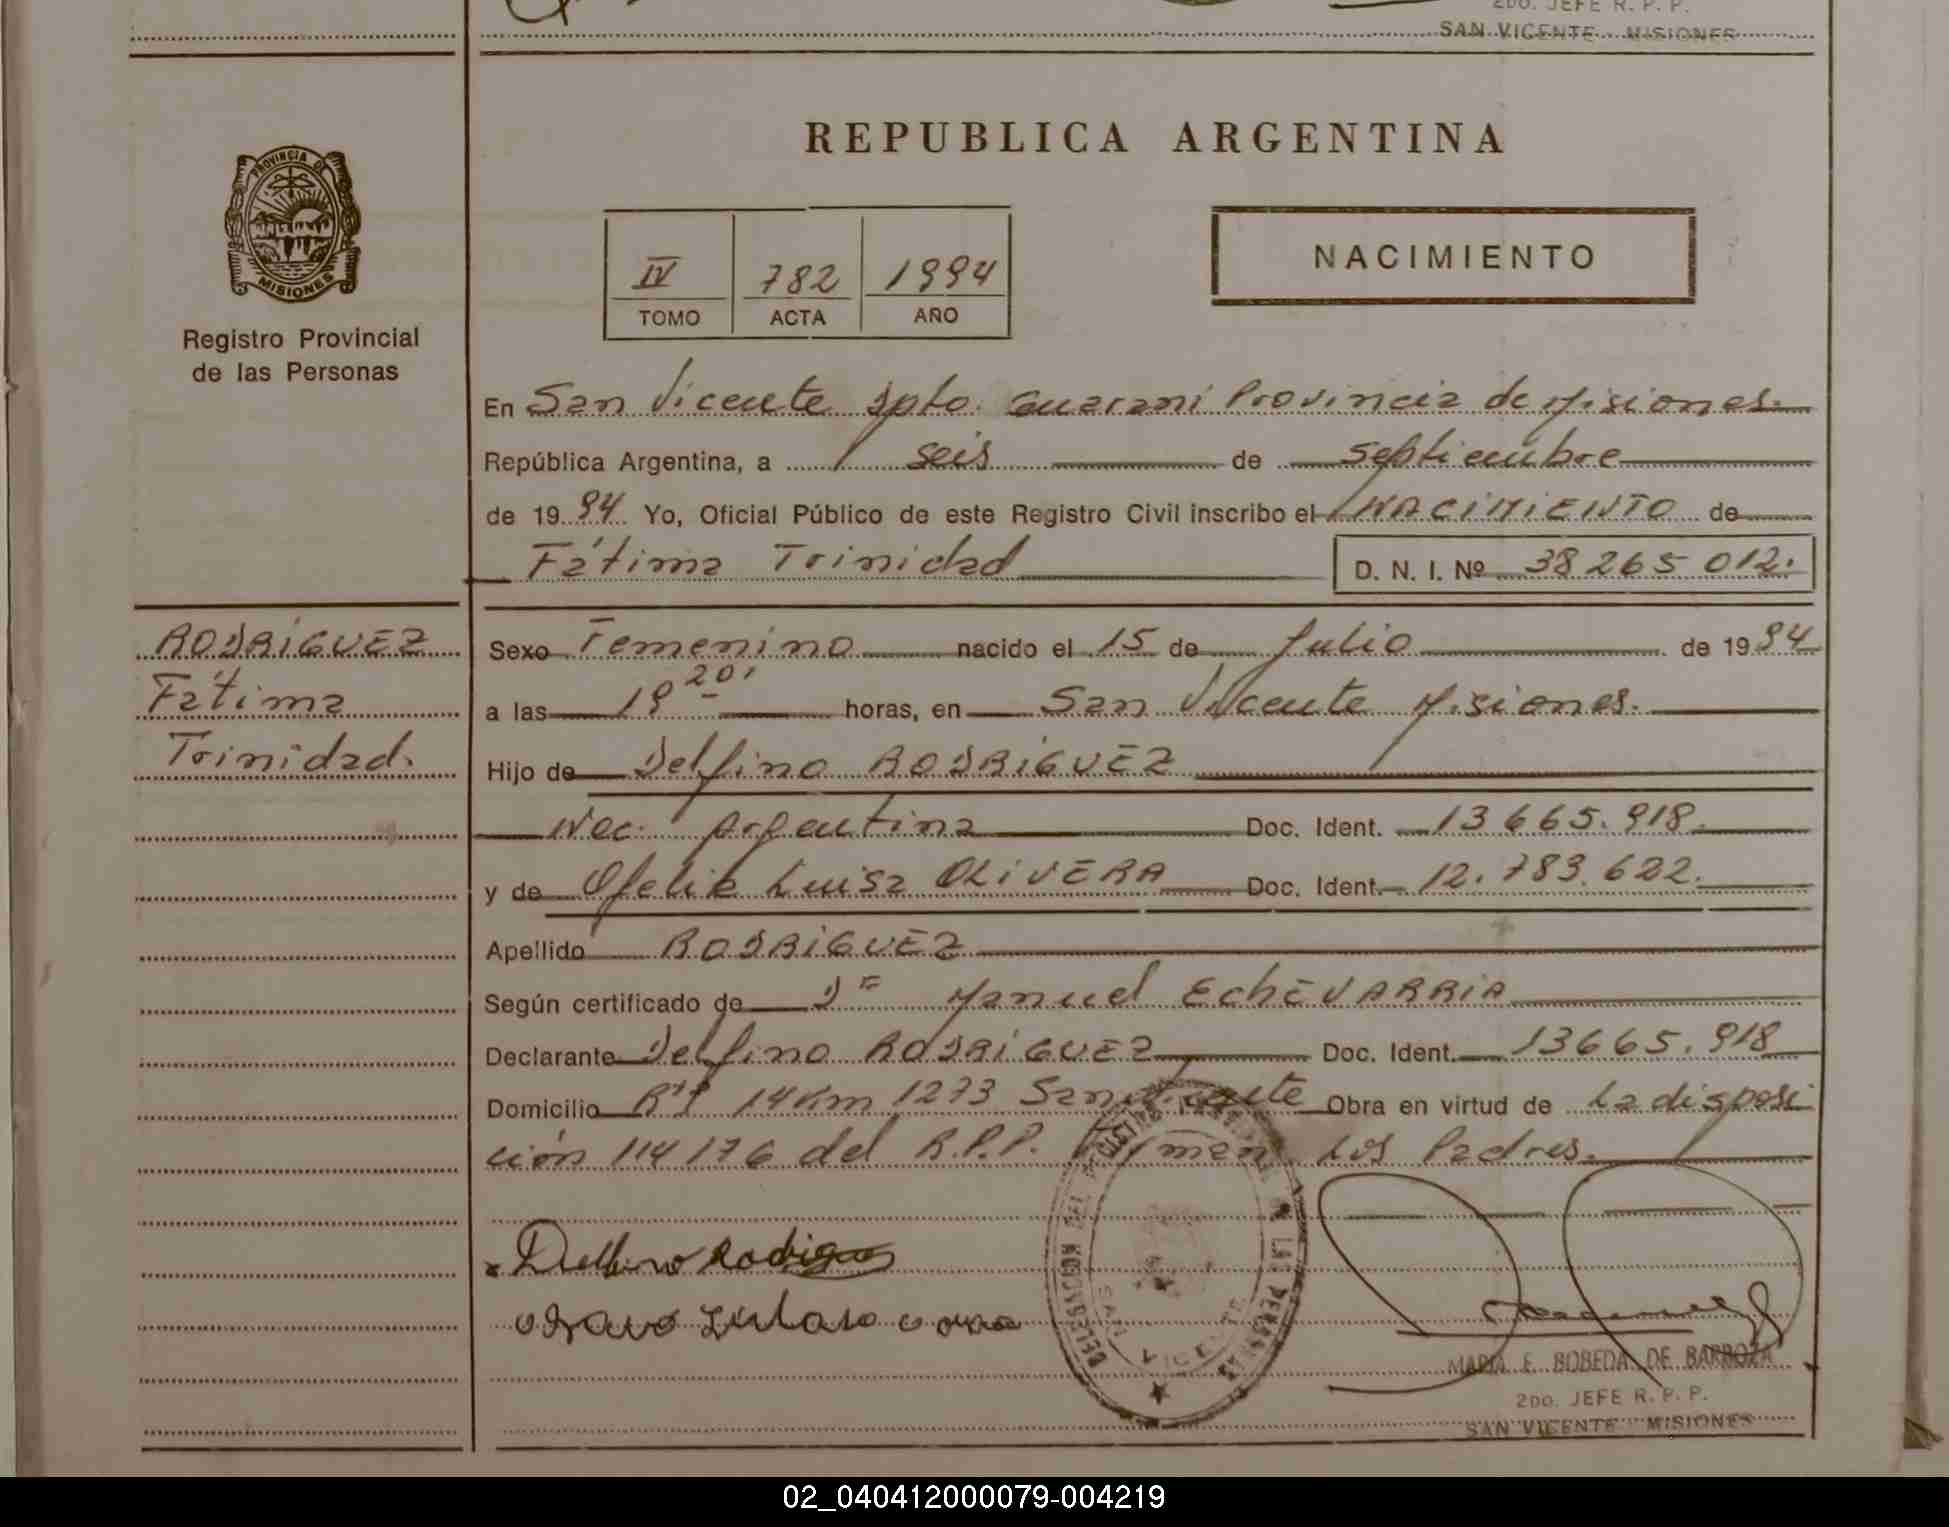 2DO. JEFE R. P. P.
SAN VICENTE MISIONES
REPUBLICA ARGENTINA
PROVINCIA DE
MISIONES
Registro Provincial
de las Personas
IV 782 1994
TOMO ACTA AÑO
NACIMIENTO
En San Vicente Dpto. Guarani Provincia de Misiones.
República Argentina, a seis de septiembre
de 1994 Yo, Oficial Público de este Registro Civil inscribo el NACIMIENTO de
Fátima Trinidad D. N. I. Nº 38 265 012.
RODRÍGUEZ
Fátima
Trinidad.
Sexo Femenino nacido el 15 de Julio de 1994
a las 19 20' horas, en San Vicente Misiones.
Hijo de Delfino RODRÍGUEZ
Nac. Argentina Doc. Ident. 13665.918.
y de Ofelia Luisa OLIVERA Doc. Ident. 12.783.622.
Apellido RODRIGUEZ
Según certificado de Dr Manuel EchEVARRIA
Declarante Delfino RODRIGUEZ Doc. Ident. 13665.918
Domicilio 14 Km 1273 San Vicente Obra en virtud de La disposi
ción 114176 del R.P.P. Firman Los Padres.
Delfino Rodrigues
DELEGACION DEL REGISTRO PROVINCIAL DE LAS PERSONAS
SAN VICENTE
MARIA E. BOBEDA DE BARBOZA
2DO. JEFE R. P. P.
SAN VICENTE MISIONES
02_040412000079-004219